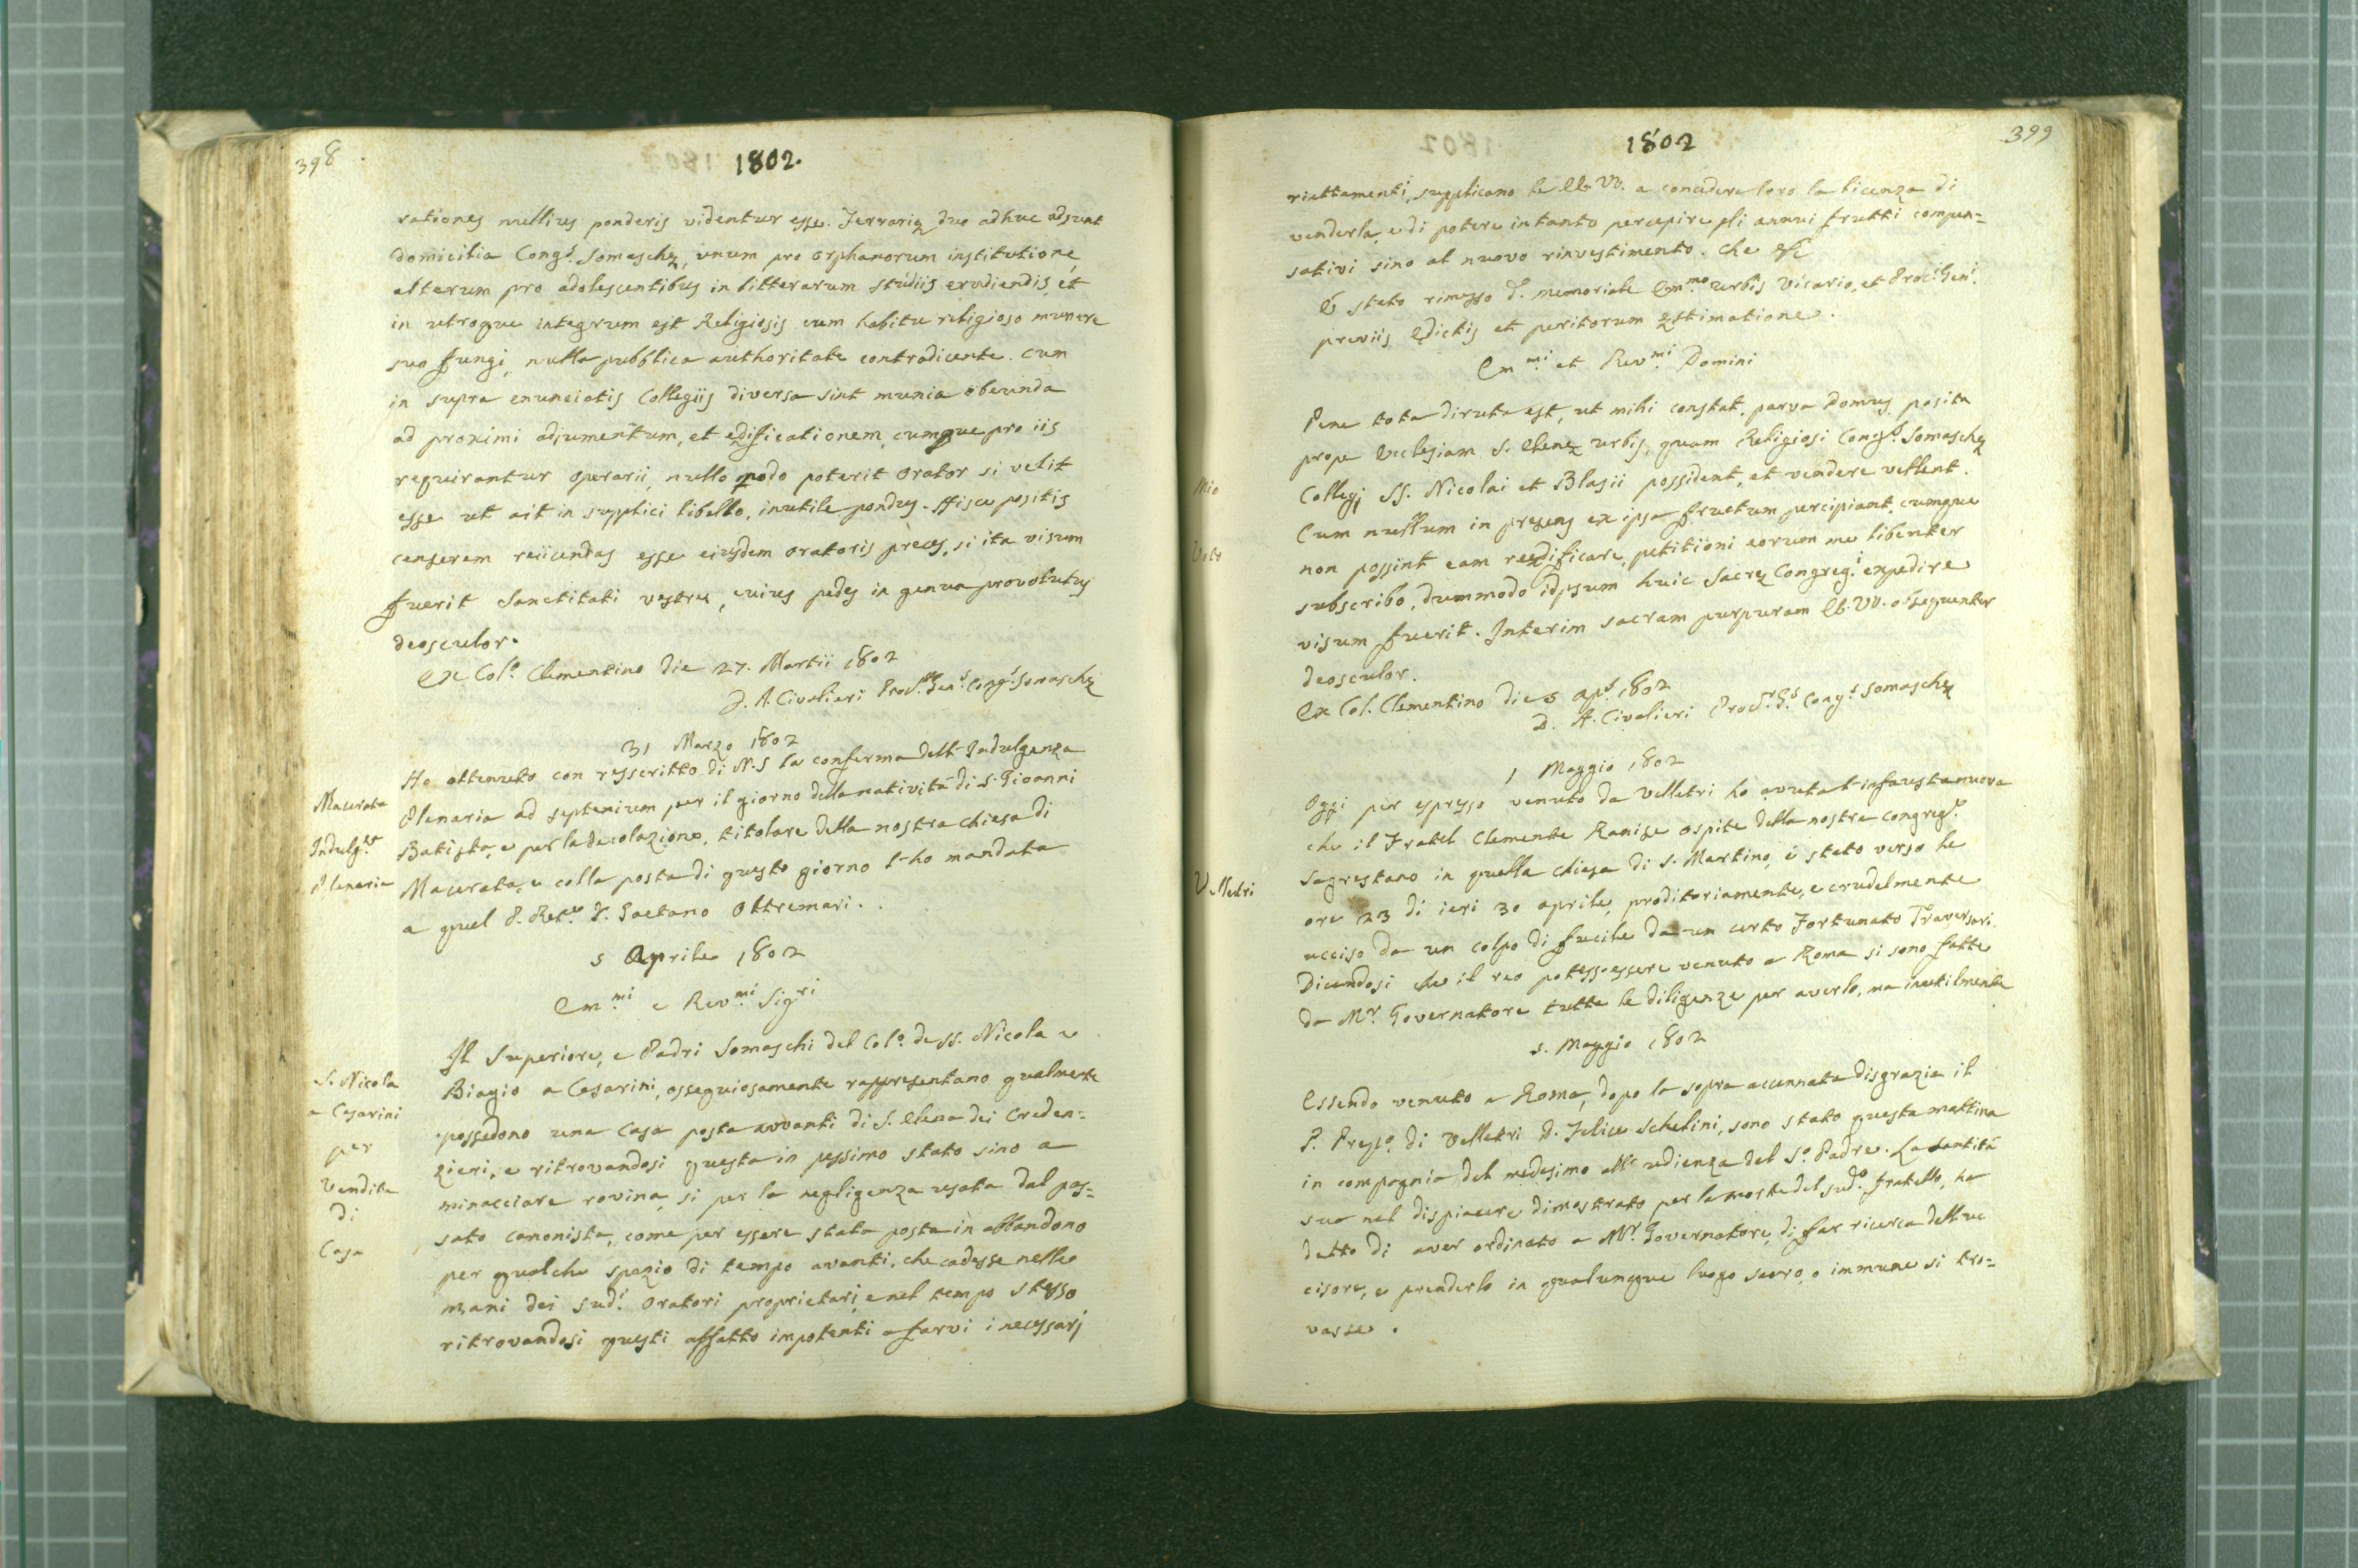 398
1802.
rationes nullius ponderis videntur esse. Ferrariæ duo adhuc adsunt
domicilia Cong.s Somaschæ, unum pro orphanorum institutione,
alterum pro adolescentibus in litterarum studiis erudiendis, et
in utroque integrum est Religiosis cum habitu religioso munere
suo fungi, nulla pubblica authoritate contradicente. Cum
in supra enunciatis Collegiis diversa sint munia obeunda
ad proximi adjumentum, et ædificationem, cumque pro iis
requirantur operarii, nullo modo poterit Orator si velit
esse ut ait in supplici libello, inutile pondus. Hisce positis
censerem reiicendas esse eiusdem Oratoris preces, si ita visum
fuerit Sanctitati vestræ, cuius pedes in genua provolutus
deosculor.
Ex Col.o Clementino die 27. Martii 1802
D. A. Civalieri Proc.r Gen.s Cong.s Somaschæ
31 Marzo 1802
Macerata
Indulg.za
Plenaria
Ho ottenuto con resscritto di N.S la conferma dell'Indulgenza
Plenaria ad septenium per il giorno della natività di S. Gioanni
Batista, e per la decolazione, titolare della nostra chiesa di
Macerata, e colla posta di questo giorno l'ho mandata
a quel P. Ret.e D. Gaetano Oltremari.
5 Aprile 1802
Em.mi e Rev.mi Sig.ri
S. Nicola
a Cesarini
per
Vendita
di
Casa
Il Superiore, e Padri Somaschi del Col.o de SS. Nicola e
Biagio a Cesarini, ossequiosamente rappresentano qualmente
possedono una Casa posta avvanti di S. Elena dei Creden=
zieri, e ritrovandosi questa in pessimo stato sino a
minacciare rovina, si per la negligenza usata dal pas=
sato canonista, come per essere stata posta in abbandono
per qualche spazio di tempo avanti, che cadesse nelle
mani dei sud.i Oratori proprietarj, e nel tempo stesso
ritrovandosi questi affatto impotenti a farvi i necessarj
1802
399
riattamenti, supplicano le EE. VV. a concedere loro la licenza di
venderla, e di potere intanto percepire gli annui frutti compen=
sativi sino al nuovo rinvestimento. Che &c
È stato rimesso d.o memoriale Em.mo Urbis Vicario, et Proc.i Gen.i
previis Edictis et peritorum æstimatione.
Em.mi et Rev.mi Domini
Mio
Voto
Pene tota diruta est, ut mihi constat, parva Domus posita
prope Ecclesiam S. Elenæ Urbis, quam Religiosi Cong.s Somaschæ
Collegj SS. Nicolai et Blasii possident, et vendere vellent.
Cum nullum in presens ex ipsa fructum percipiant, cumque
non possint eam reædificare, petitiioni eorum me libenter
subscribo, dummodo idipsum huic Sacræ Congreg.i expedire
visum fuerit. Interim sacram purpuram EE. VV. obsequenter
deosculor.
Ex Col. Clementino die 5 Ap.s 1802
D. A. Civalieri Proc.r G.s Cong.s Somaschæ
1 Maggio 1802
Velletri
Oggi per espresso venuto da Velletri ho avuta l'infausta nuova
che il Fratel Clemente Ranise ospite della nostra congreg.e
Sagrestano in quella chiesa di S. Martino, è stato verso le
ore 23 di ieri 30 aprile, proditoriamente, e crudelmente
ucciso da un colpo di fucile da un certo Fortunato Traversari.
Dicendosi che il reo potess.essere venuto a Roma si sono fatte
da Mr. Governatore tutte le diligenze per averlo, ma inutilmente
5. Maggio 1802
Essendo venuto a Roma, dopo la sopra accennata disgrazia il
P. Prep.o di Velletri D. Felice Schelini, sono stato questa mattina
in compagnia del medesimo all'udienza del S.o Padre. La Santità
sua nel dispiacere dimostrato per la morte del sud.o fratello, ha
detto di aver ordinato a Mr. Governatore, di far ricerca dell'uc
cisore, e prenderlo in qualunque luogo sacro, o immune si tro=
vasse.